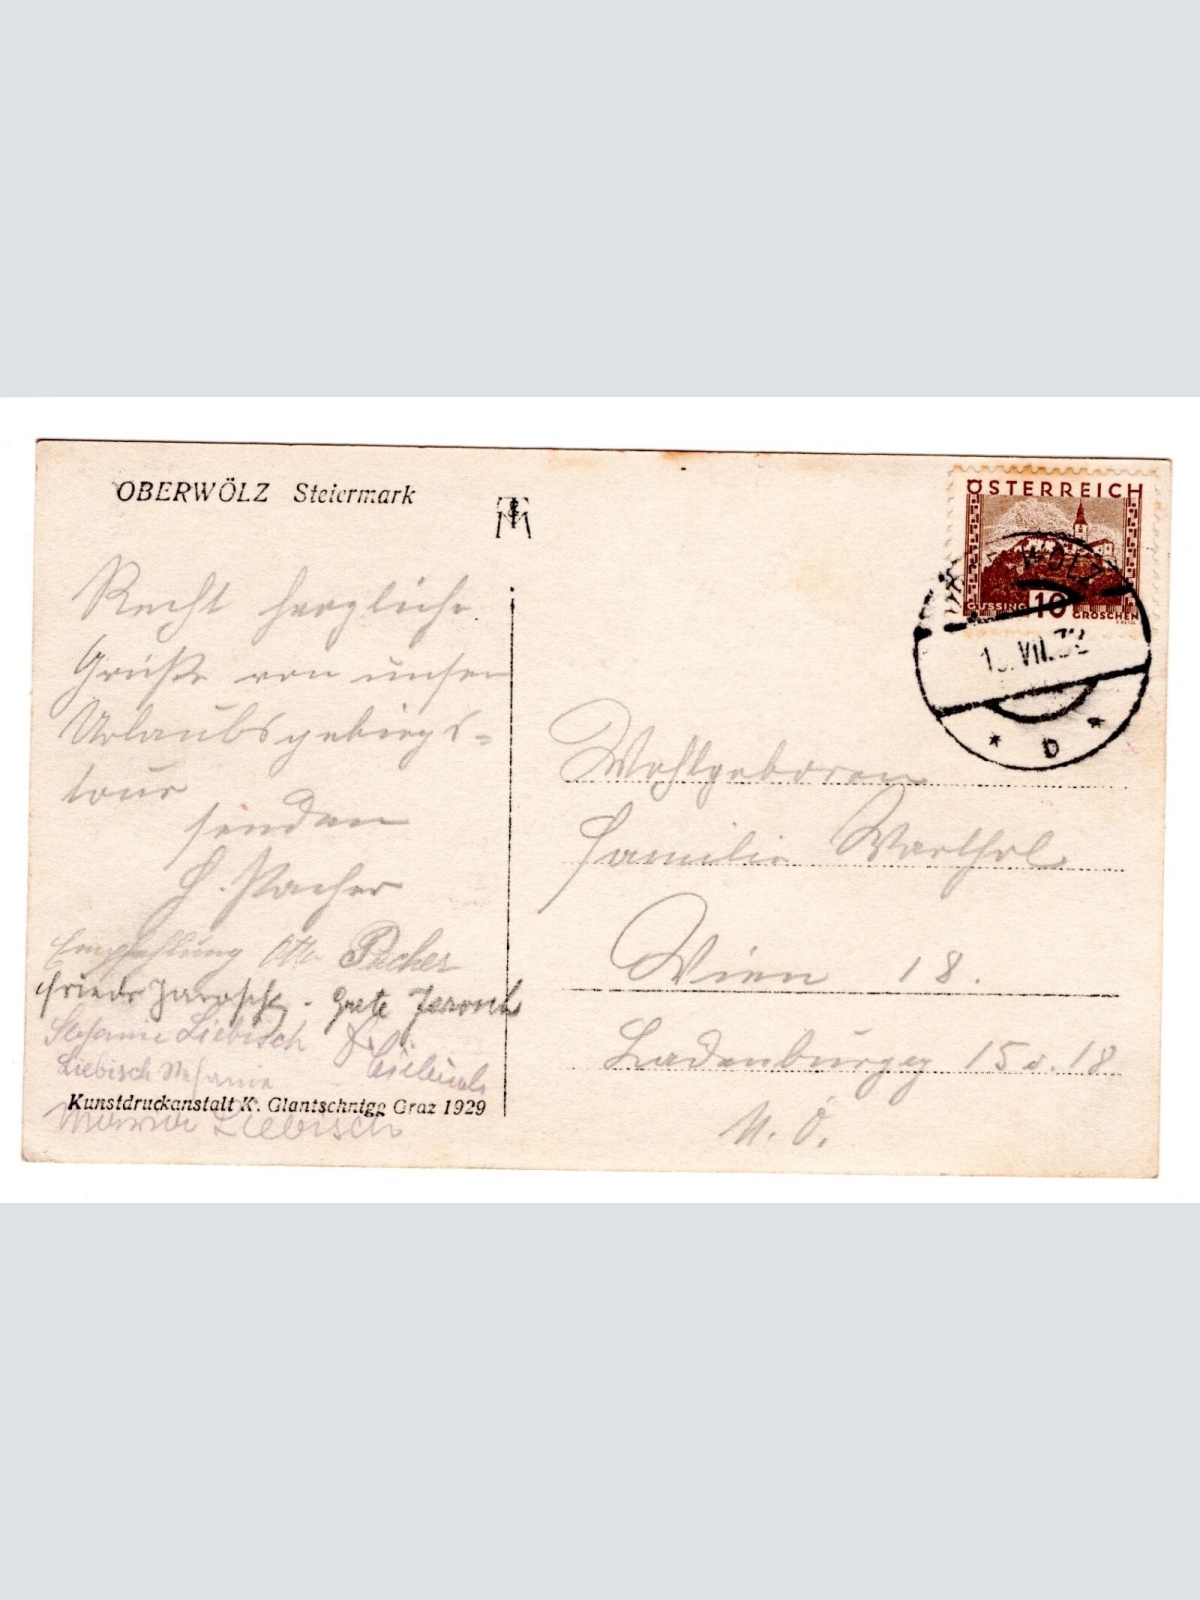 OBERWÖLZ Steiermark
Recht herzliche
Grüße von unserer
Urlaubsgebirgs=
tour
senden
H. Pacher
Empfehlung Otto Pacher
Grete
Stefanie Liebisch
Liebisch Stefanie
Kunstdruckanstalt K. Glantschnigg Graz 1929
Liebisch
ÖSTERREICH
GÜSSING 10 GROSCHEN
WÖLZ
VII.32
* b *
Wohlgeboren
Familie
Wien 18.
Ladenburgg 15
N. Ö.